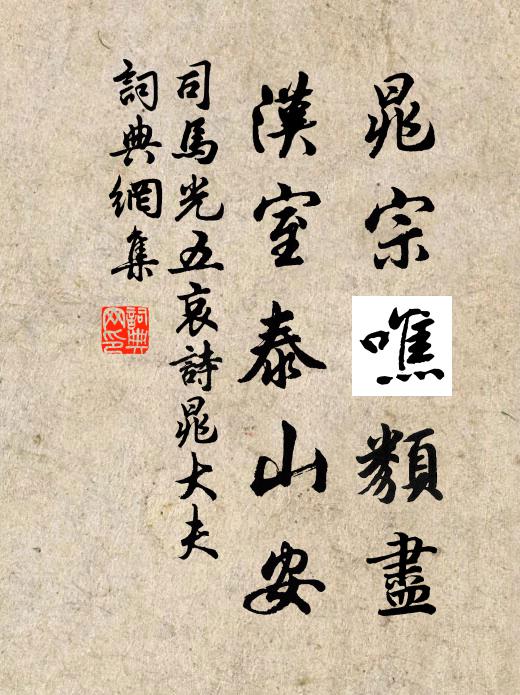 鼂宗噍類盡
漢室泰山安
司馬光五哀詩鼂大夫
詞典網集
詞典網印